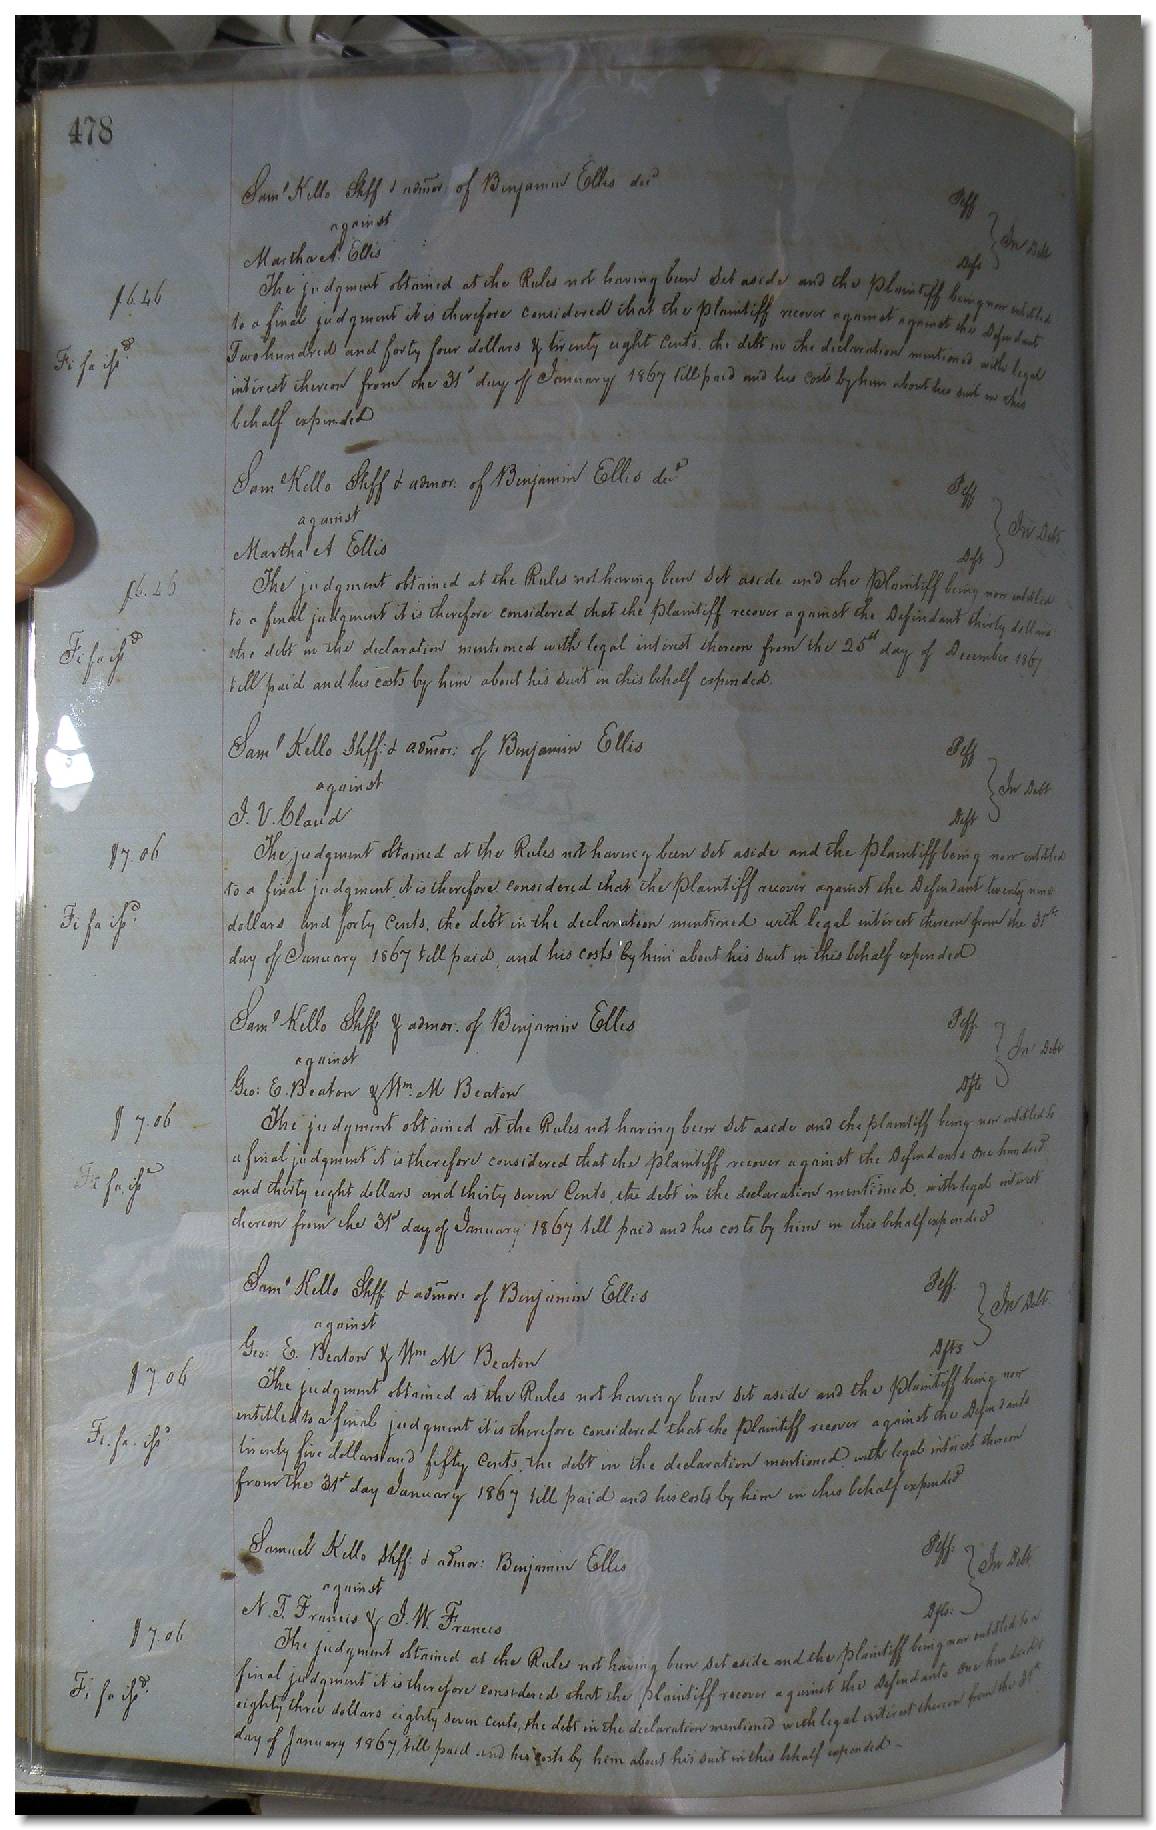 478
Saml Kello Shff & admor. of Benjamin Ellis decd Plff
against
Martha A. Ellis Deft } In Debt
The judgment obtained at the Rules not having been set aside and the Plaintiff being now entitled
$6.46
to a final judgment it is therefore considered that the Plaintiff recover against against the Defendant
Fi fa issd
Two hundred and forty four dollars & twenty eight cents, the debt in the declaration mentioned with legal
interest thereon from the 31st day of January 1867 till paid and his costs by him about his suit in this
behalf expended
Saml Kello Shff & admor. of Benjamin Ellis decd Plff
against
Martha A Ellis Deft } In Debt
The judgment obtained at the Rules not having been set aside and the Plaintiff being now entitled
$6.46
to a final judgment it is therefore considered that the Plaintiff recover against the Defendant thirty dollars
Fi fa issd
the debt in the declaration mentioned with legal interest thereon from the 25th day of December 1867
till paid and his costs by him about his suit in this behalf expended.
Saml Kello Shff: & admor: of Benjamin Ellis Plff
against
J. V. Claud Deft } In Debt
The judgment obtained at the Rules not having been set aside and the Plaintiff being now entitled
$7.06
to a final judgment it is therefore considered that the Plaintiff recover against the Defendant twenty nine
Fi fa issd
dollars and forty cents, the debt in the declaration mentioned with legal interest thereon from the 31st
day of January 1867 till paid, and his costs by him about his suit in this behalf expended
Saml Kello Shff: & admor. of Benjamin Ellis Plff.
against
Geo: E. Beaton & Wm. M Beaton Dfts } In Debt
The judgment obtained at the Rules not having been set aside and the plaintiff being now entitled to
$7.06
a final judgment it is therefore considered that the Plaintiff recover against the Defendants One hundred
Fi fa issd
and thirty eight dollars and thirty seven Cents, the debt in the declaration mentioned, with legal interest
thereon from the 31st day of January 1867 till paid and his costs by him in this behalf expended
Saml Kello Shff: & admor: of Benjamin Ellis Plff.
against
Geo: E. Beaton & Wm M Beaton Dfts } In Debt.
The judgment obtained at the Rules not having been set aside and the Plaintiff being now
$7.06
entitled to a final judgment it is therefore considered that the Plaintiff recover against the Defendants
Fi. fa. issd
twenty five dollars and fifty cents, the debt in the declaration mentioned with legal interest thereon
from the 31st day January 1867 till paid and his costs by him in this behalf expended
Samuel Kello Shff: & admor: Benjamin Ellis Plff:
against
N. T. Francis & J. W. Francis Dfts: } In Debt
The judgment obtained at the Rules not having been set aside and the Plaintiff being now entitled to a
$7.06
final judgment it is therefore considered that the Plaintiff recover against the Defendants One hundred &
Fi fa issd
eighty three dollars eighty seven cents, the debt in the declaration mentioned with legal interest thereon from the 31st
day of January 1867, till paid and his costs by him about his suit in this behalf expended -